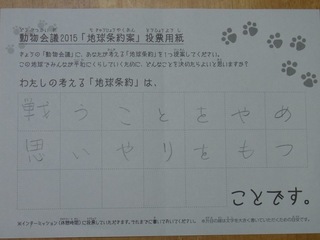 動物会議2015「地球条約案」投票用紙
きょうの「動物会議」に、あなたが考える「地球条約」を1つ提案してください。
この地球でみんなが平和にくらしていくために、どんなことを決めたらよいと思いますか?
わたしの考える「地球条約」は、
戦うことをやめ
思いやりをもつ
ことです。